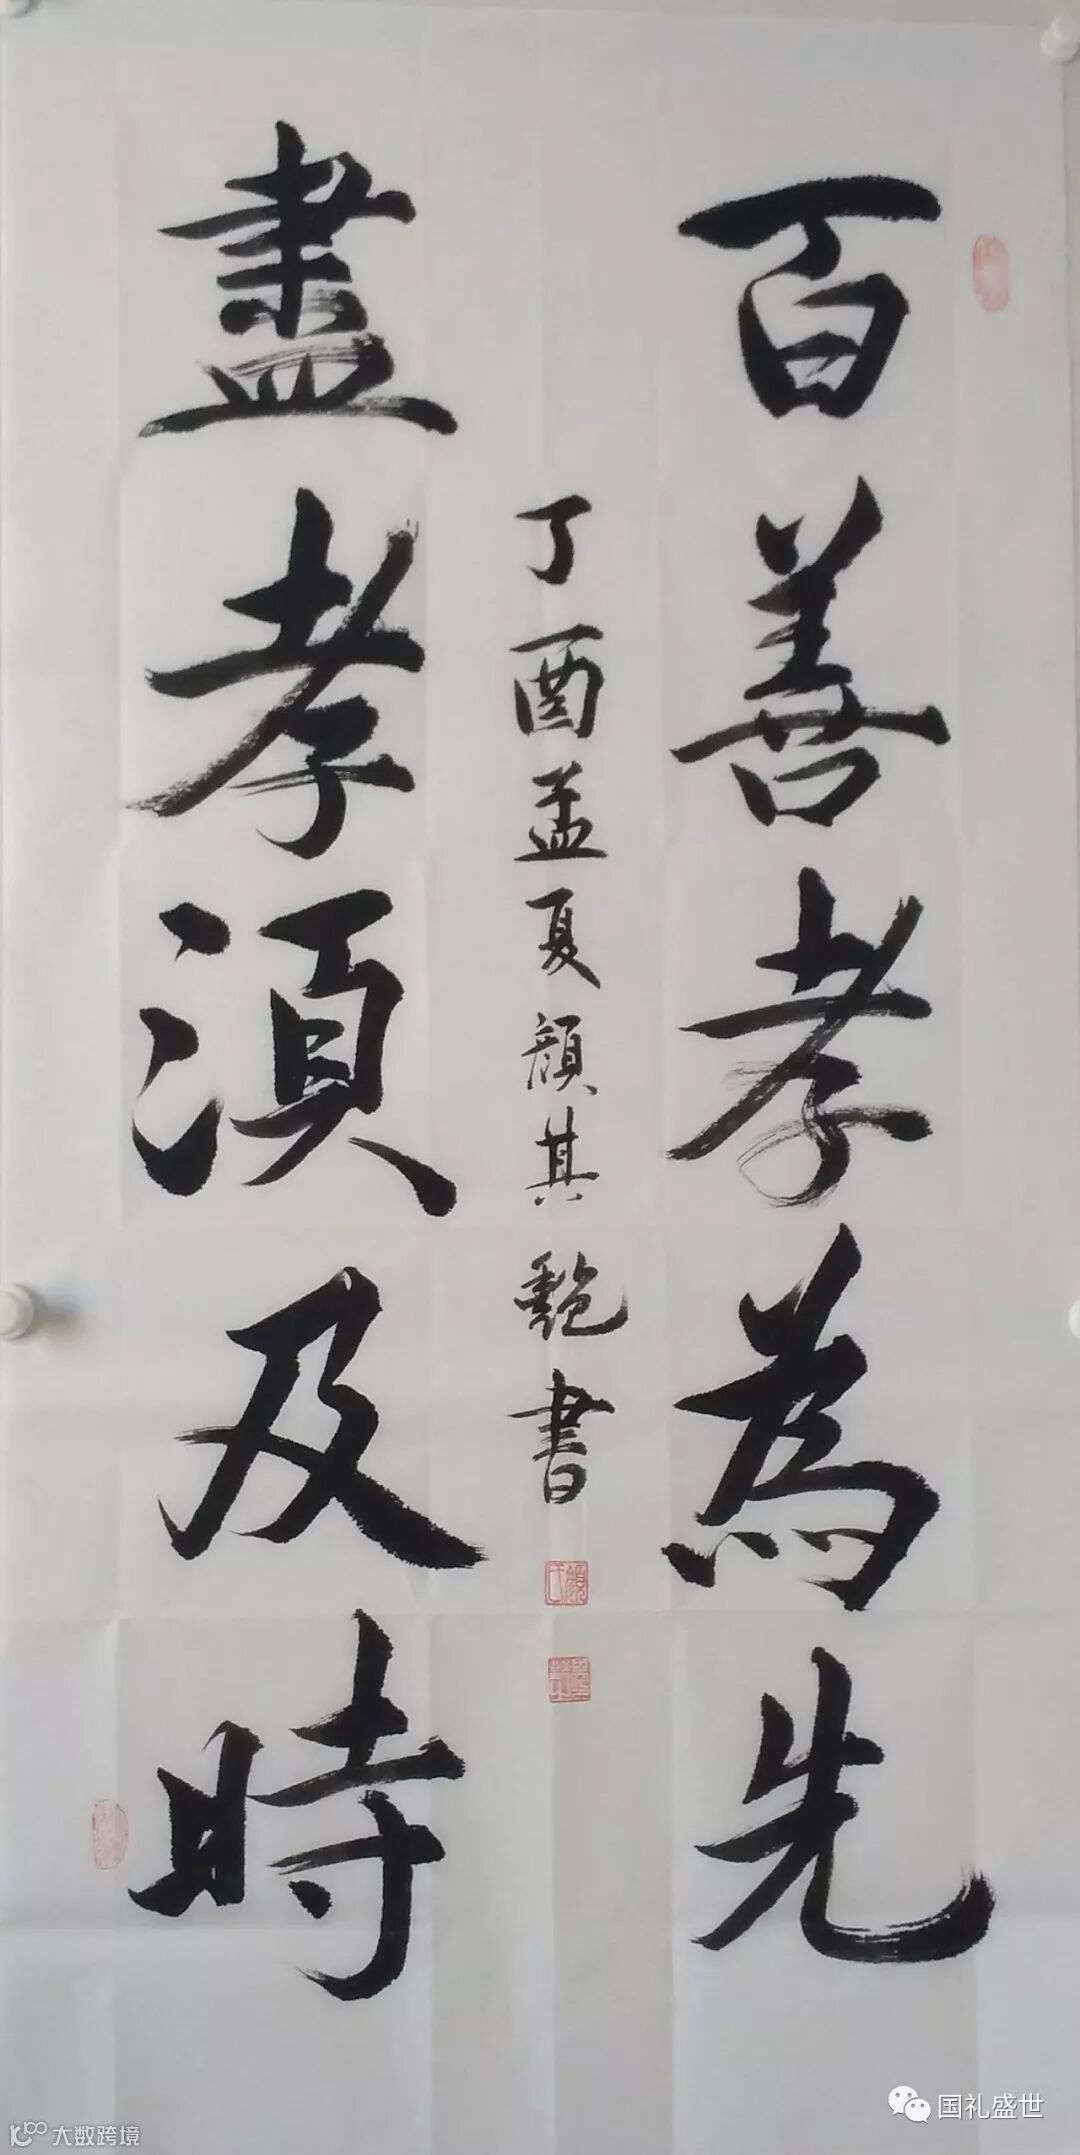 百善孝為先
丁酉孟夏顔其艷書
盡孝須及時
顔氏
国礼盛世
大数跨境